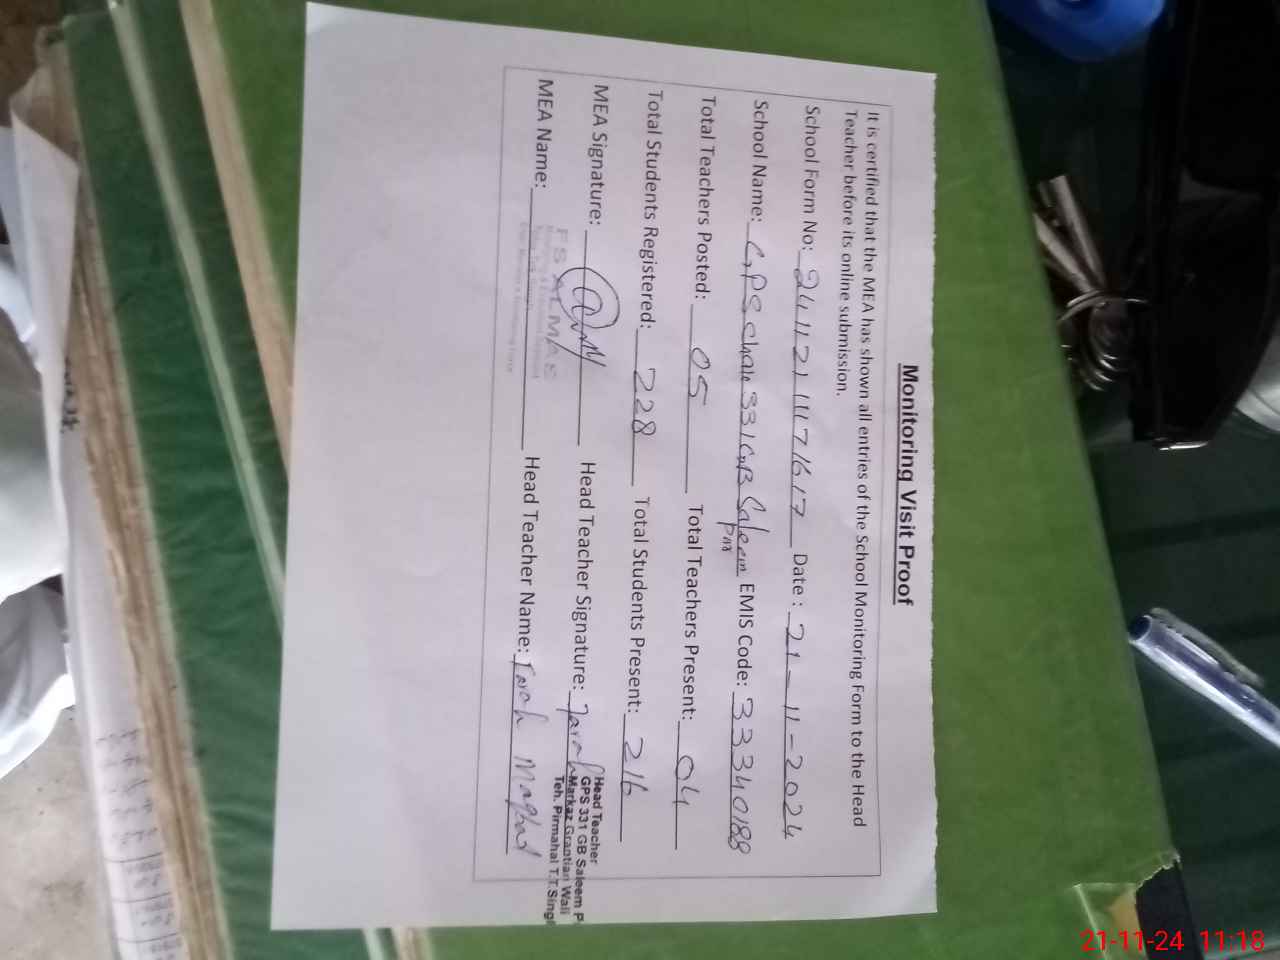 Monitoring Visit Proof
It is certified that the MEA has shown all entries of the School Monitoring Form to the Head
Teacher before its online submission.
School Form No: 24112111171617 Date : 21-11-2024
School Name: GPS Chak 331 GB Saleem EMIS Code: 33340188
Total Teachers Posted: 05 Total Teachers Present: 04
Total Students Registered: 228 Total Students Present: 216
MEA Signature: Head Teacher Signature: Farah
MEA Name: Head Teacher Name: Farah
Head Teacher
GPS 331 GB Saleem P
Markaz Grantian Wali
Teh. Pirmahal T.T.Singh
21-11-24 11:18